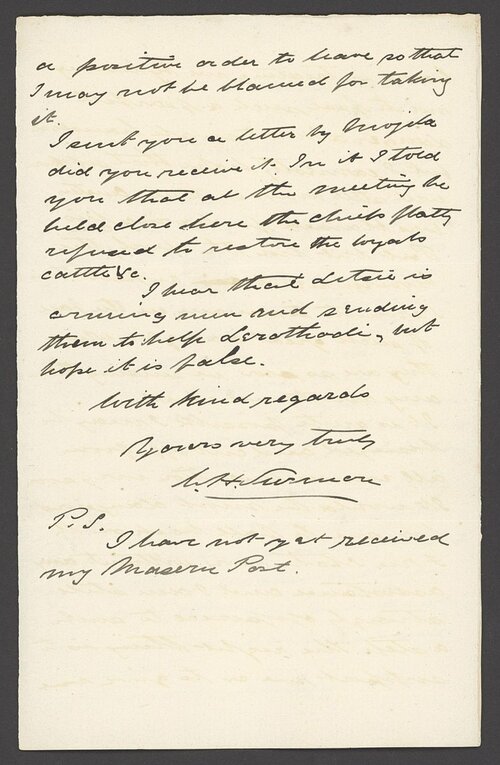 a positive order to leave so that
I may not be blamed for taking
it.
I sent you a letter by Mojela
did you receive it. In it I told
you that at the meeting he
held close here the chiefs flatly
refused to restore the loyals
cattle &c.
I hear that Letsie is
arming men and sending
them to help Lerothodi, but
hope it is false.
With kind regards
Yours very truly
C.H. Surmon
P.S.
I have not yet received
my Maseru Post.